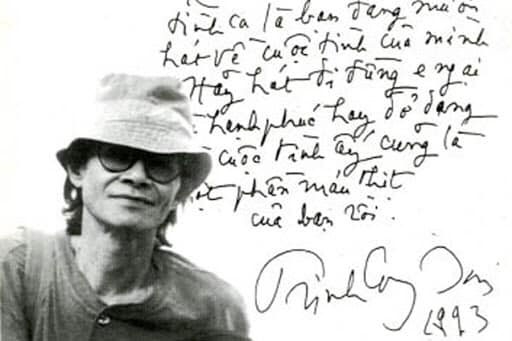 tình ca là bạn đang muốn
hát về cuộc tình của mình
Hãy hát đi đừng e ngại
hạnh phúc hay dở dang
cuộc tình ấy cũng là
một phần máu thịt
của bạn rồi.
Trịnh Công Sơn
1993